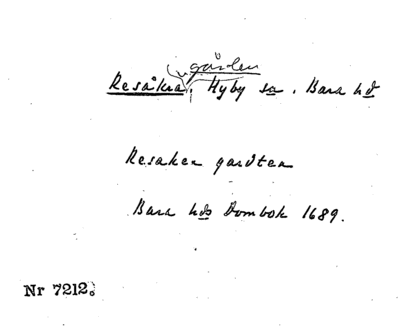 gården
Resåkra, Hyby sn. Bara hd
Resaker gardten
Bara hds Dombok 1689.
Nr 7212.